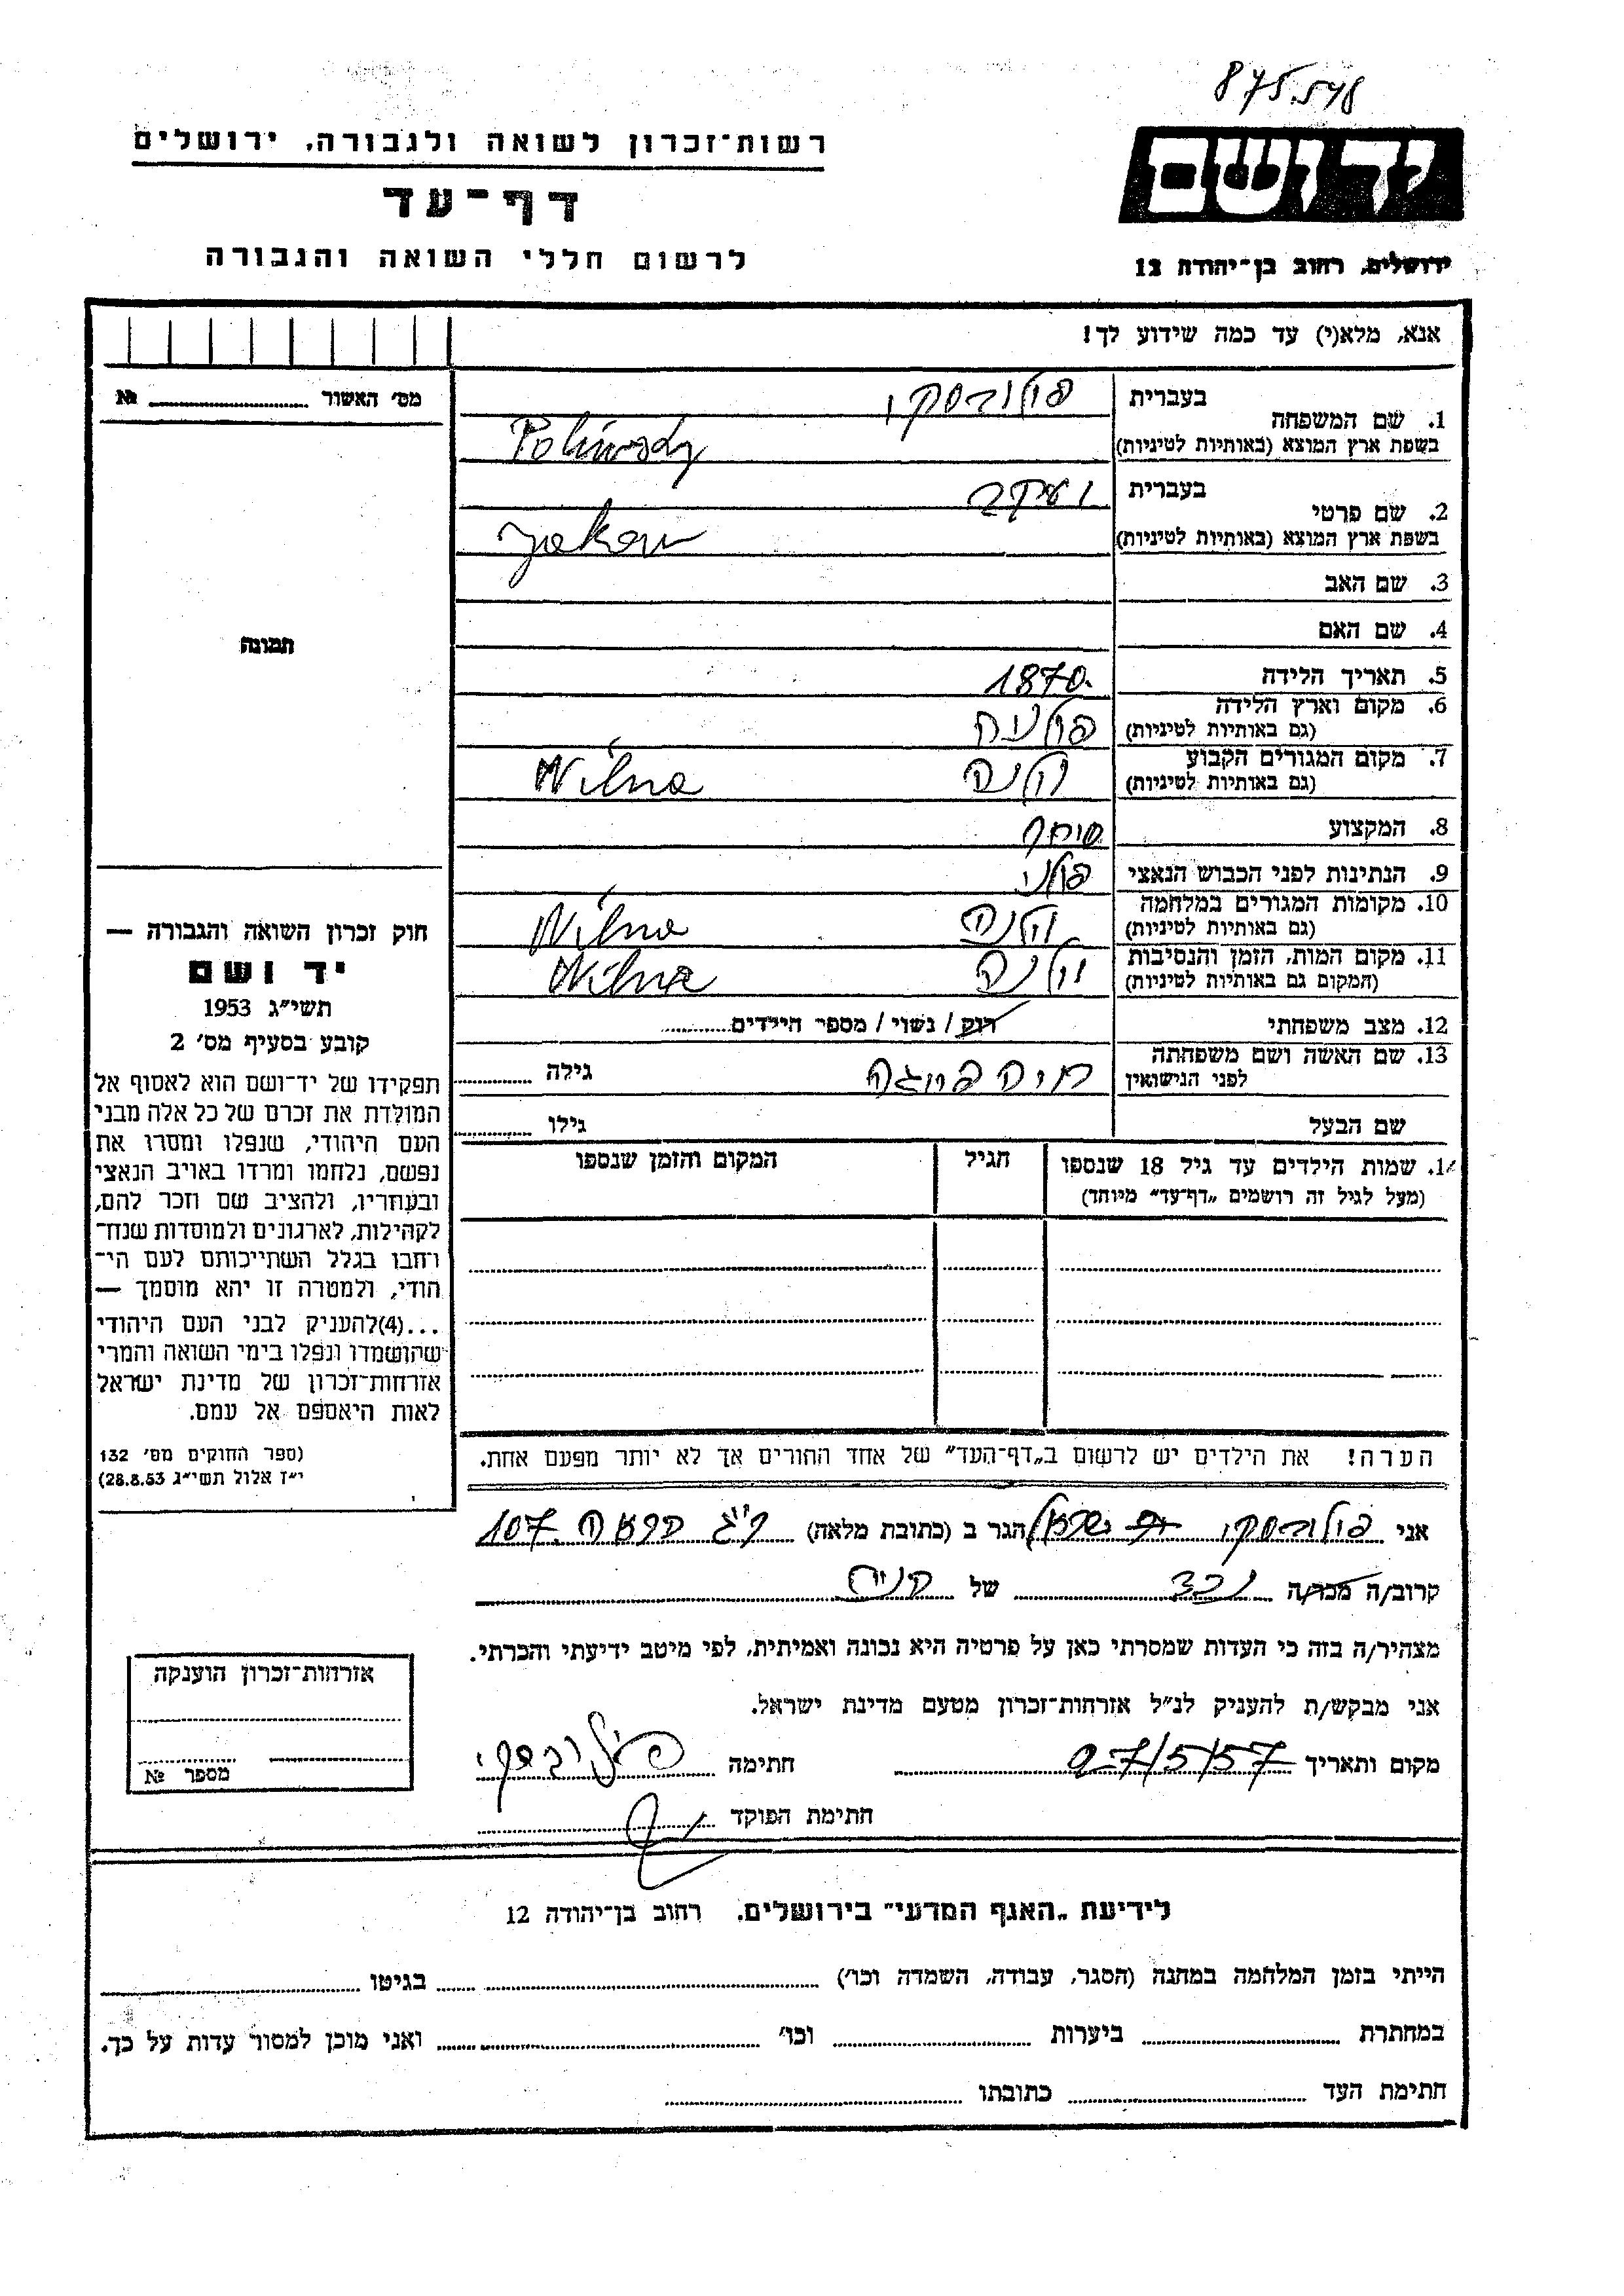 875.548
יד ושם
ירושלים, רחוב בן־יהודה 12
רשות־זכרון לשואה ולגבורה, ירושלים
דף־עד
לרשום חללי השואה והגבורה
אנא, מלא(י) עד כמה שידוע לך!
1. שם המשפחה
בעברית
בשפת ארץ המוצא (באותיות לטיניות)
2. שם פרטי
בעברית יעקב
בשפת ארץ המוצא (באותיות לטיניות) Jakow
3. שם האב
4. שם האם
5. תאריך הלידה 1870.
6. מקום וארץ הלידה פולניה
(גם באותיות לטיניות)
7. מקום המגורים הקבוע וילנה Wilna
(גם באותיות לטיניות)
8. המקצוע סוחר
9. הנתינות לפני הכבוש הנאצי פולני
10. מקומות המגורים במלחמה וילנה Wilna
(גם באותיות לטיניות)
11. מקום המות, הזמן והנסיבות וילנה Wilna
(המקום גם באותיות לטיניות)
12. מצב משפחתי רוק / נשוי / מספר הילדים
13. שם האשה ושם משפחתה
לפני הנישואין גילה
שם הבעל גילו
14. שמות הילדים עד גיל 18 שנספו הגיל המקום והזמן שנספו
(מעל לגיל זה רושמים „דף־עד" מיוחד)
הערה! את הילדים יש לרשום ב„דף־העד" של אחד ההורים אך לא יותר מפעם אחת.
אני הגר ב (כתובת מלאה) 107
קרוב/ה מכר/ה נכד של
מצהיר/ה בזה כי העדות שמסרתי כאן על פרטיה היא נכונה ואמיתית, לפי מיטב ידיעתי והכרתי.
אני מבקש/ת להעניק לנ"ל אזרחות־זכרון מטעם מדינת ישראל.
מקום ותאריך 27/5/57 חתימה
חתימת הפוקד
מס' האשור №
תמונה
חוק זכרון השואה והגבורה —
יד ושם
תשי"ג 1953
קובע בסעיף מס' 2
תפקידו של יד־ושם הוא לאסוף אל
המולדת את זכרם של כל אלה מבני
העם היהודי, שנפלו ומסרו את
נפשם, נלחמו ומרדו באויב הנאצי
ובעוזריו, ולהציב שם וזכר להם,
לקהילות, לארגונים ולמוסדות שנח־
רבו בגלל השתייכותם לעם הי־
הודי, ולמטרה זו יהא מוסמך —
...(4)להעניק לבני העם היהודי
שהושמדו ונפלו בימי השואה והמרי
אזרחות־זכרון של מדינת ישראל
לאות היאספם אל עמם.
(ספר החוקים מס' 132
י"ז אלול תשי"ג 28.8.53)
אזרחות־זכרון הוענקה
מספר №
לידיעת „האגף המדעי" בירושלים, רחוב בן־יהודה 12
הייתי בזמן המלחמה במחנה (הסגר, עבודה, השמדה וכו') בגיטו
במחתרת ביערות וכו' ואני מוכן למסור עדות על כך.
חתימת העד כתובתו